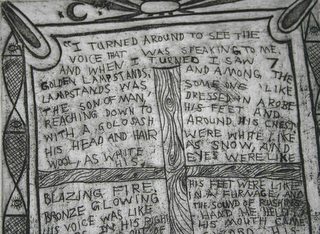 "I TURNED AROUND TO SEE THE
VOICE THAT WAS SPEAKING TO ME.
AND WHEN I TURNED I SAW 7
GOLDEN LAMPSTANDS, AND AMONG THE
LAMPSTANDS WAS SOME ONE LIKE
THE SON OF MAN, DRESSED IN A ROBE
REACHING DOWN TO HIS FEET AND
WITH A GOLD SASH AROUND HIS CHEST
HIS HEAD AND HAIR WERE WHITE LIKE
WOOL, AS WHITE AS SNOW, AND
HIS EYES WERE LIKE
BLAZING FIRE. HIS FEET WERE LIKE
BRONZE GLOWING IN A FURNACE, AND
HIS VOICE WAS LIKE THE SOUND OF RUSHING
IN HIS RIGHT HAND HE HELD
OF HIS MOUTH CAME
HIS